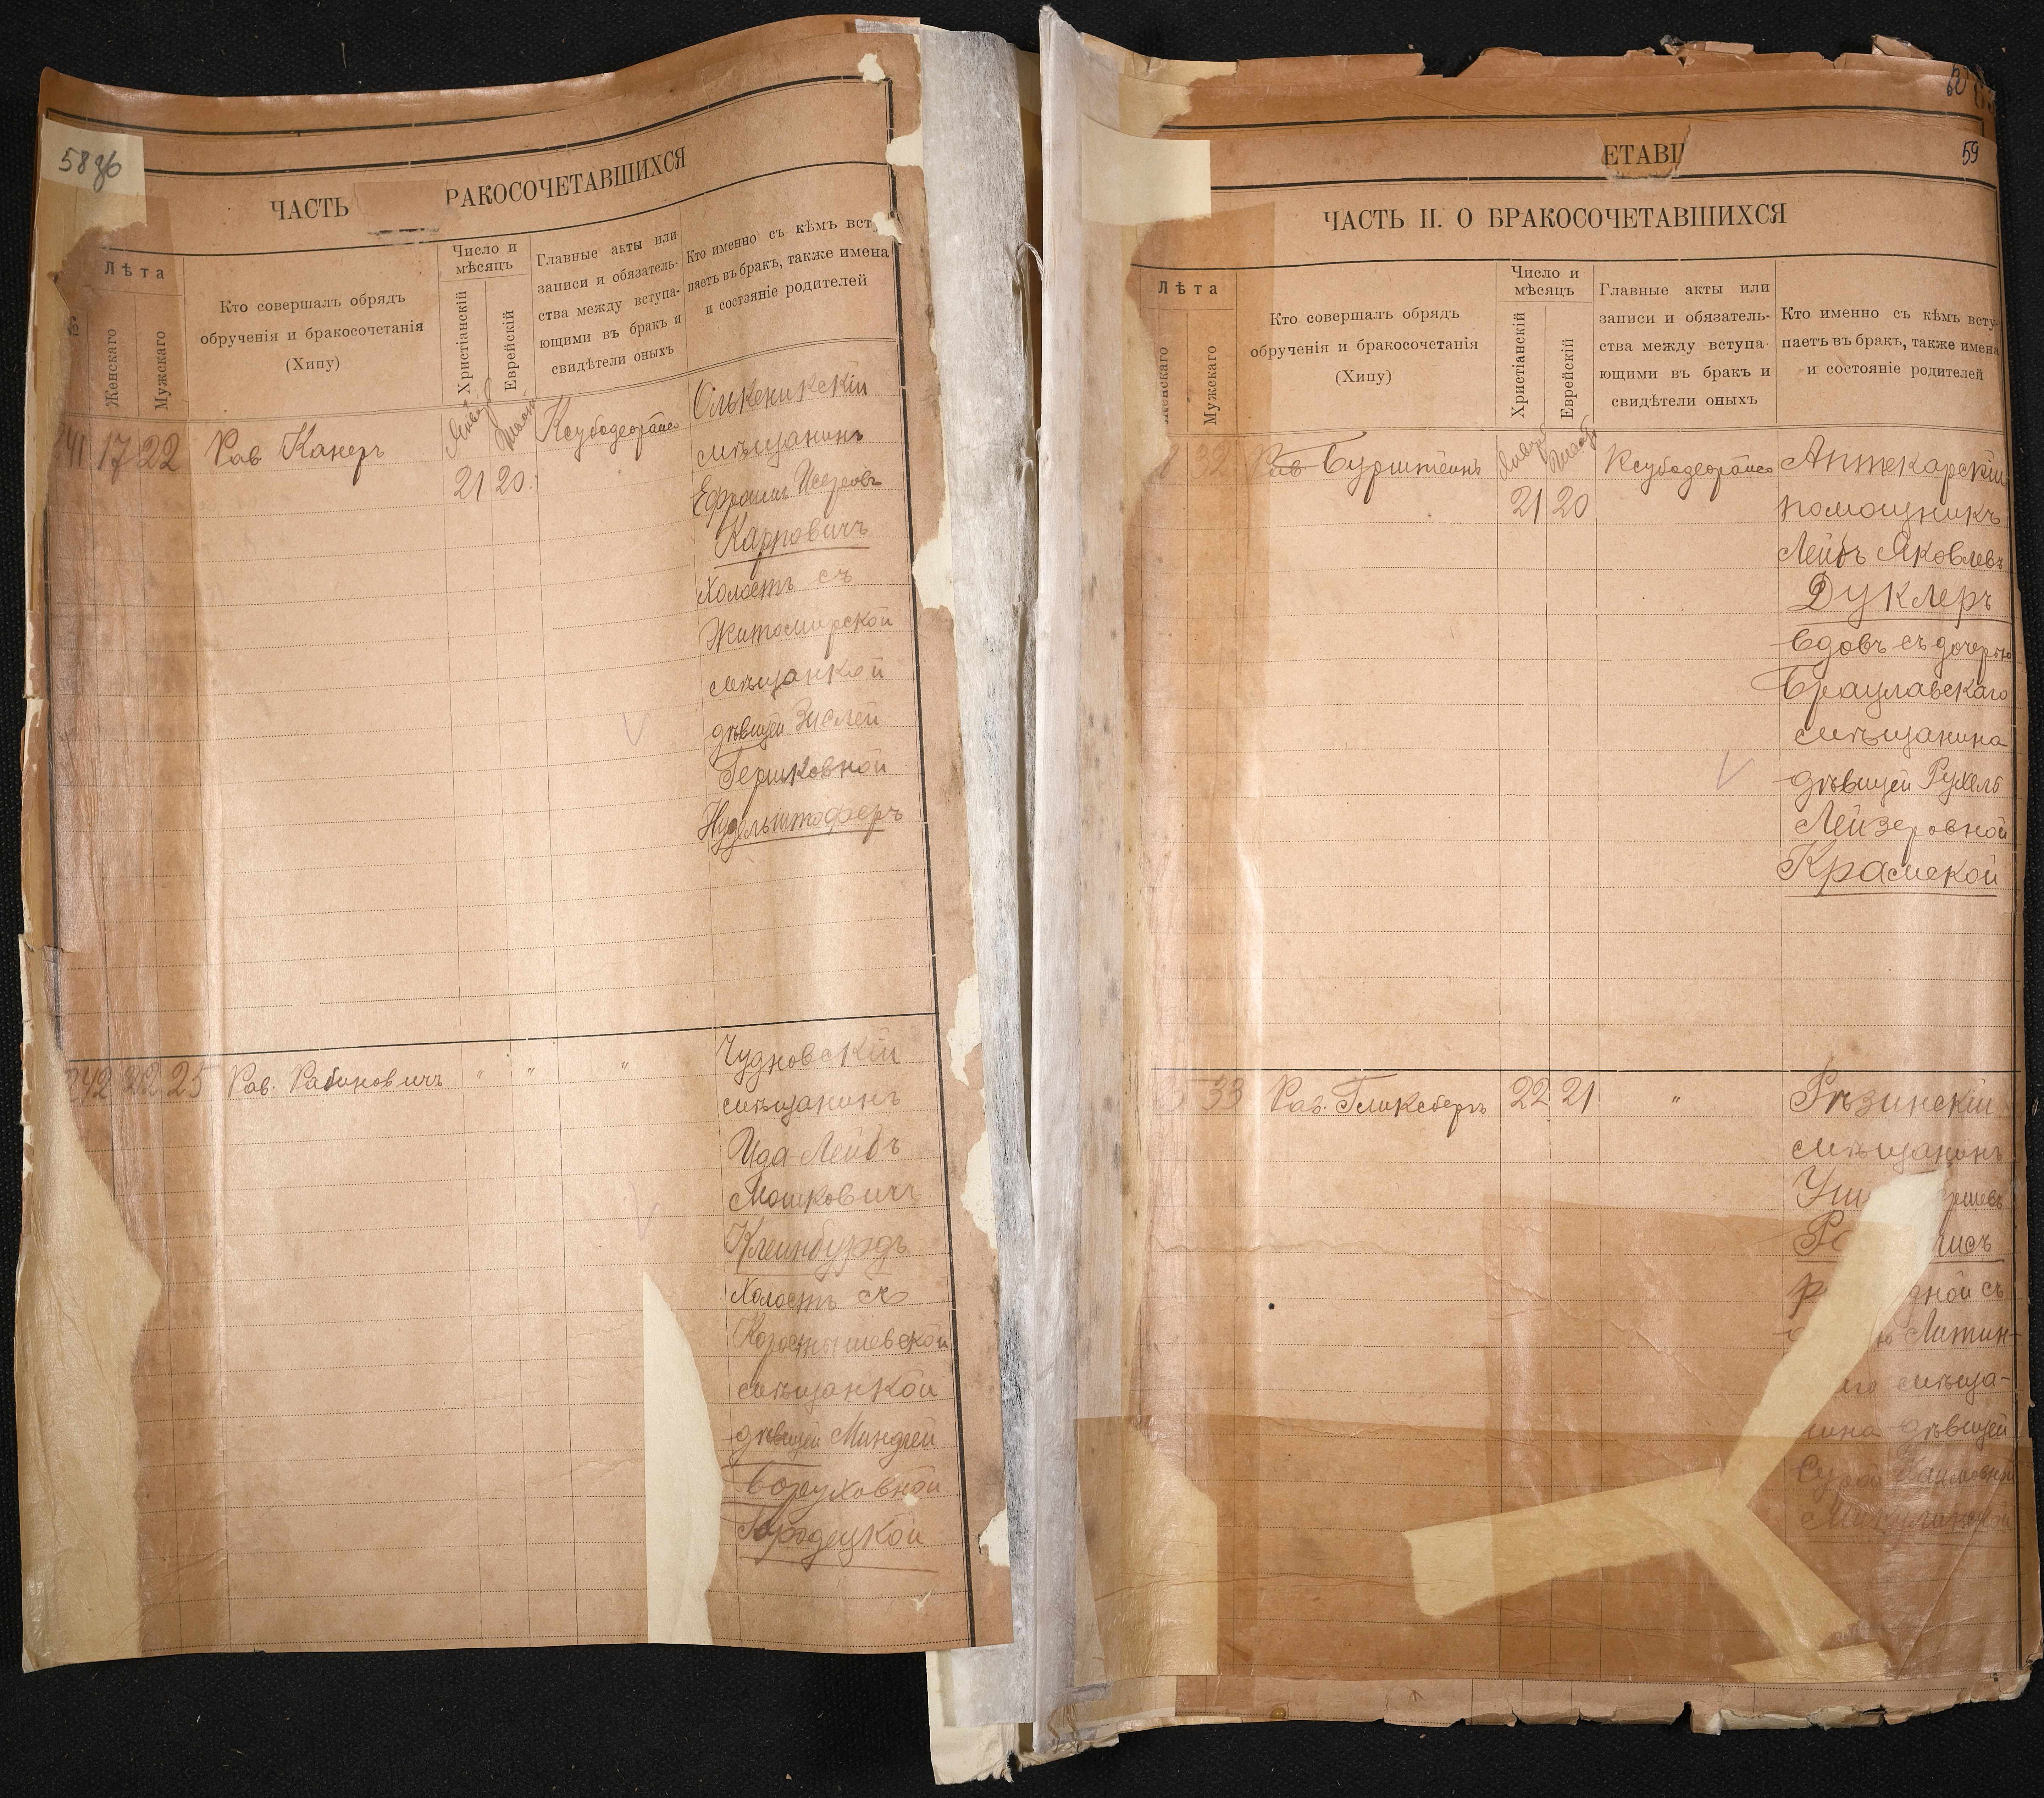 58 зб
ЧАСТЬ РАКОСОЧЕТАВШИХСЯ
Лѣта
Женскаго
Мужскаго
Кто совершалъ обрядъ
обрученія и бракосочетанія
(Хипу)
Число и
мѣсяцъ
Христіанскій
Еврейскій
Главные акты или
записи и обязатель-
ства между вступа-
ющими въ бракъ и
свидѣтели оныхъ
Кто именно съ кѣмъ всту
паетъ въ бракъ, также имена
и состояніе родителей
241 17 22 Рав Канеръ
21 20
Олькеникскій
мѣщанинъ
Ефроимъ
Карповичъ
Холостъ съ
Житомирской
мѣщанкой
дѣвицей Зислей
Гершковной
Нудельштоферъ
242 22 25 Рав. Рабиновичъ " " "
Чудновскій
мѣщанинъ
Ида Лейбъ
Мошковичъ
Клеинбурдъ
Холостъ съ
Коростышевской
мѣщанкой
дѣвицей Миндлей
Боруховной
Городецкой
60
ЕТАВШ
59
ЧАСТЬ II. О БРАКОСОЧЕТАВШИХСЯ
Лѣта
енскаго
Мужскаго
Кто совершалъ обрядъ
обрученія и бракосочетанія
(Хипу)
Число и
мѣсяцъ
Христіанскій
Еврейскій
Главные акты или
записи и обязатель-
ства между вступа-
ющими въ бракъ и
свидѣтели оныхъ
Кто именно съ кѣмъ всту-
паетъ въ бракъ, также имена
и состояніе родителей
32 Рав Бурштейнъ
21 20
Аптекарскій
помощникъ
Лейбъ Яковлевъ
Дуклеръ
вдовъ съ дочерью
Брацлавскаго
мѣщанина
дѣвицей Рухель
Лейзеровной
Крамской
33 Рав. Гликсбергъ 22 21 "
Рѣзинскій
мѣщанинъ
ршевъ
Ро исъ
р дной съ
ъ Литин-
аго мѣща-
нина дѣвицей
Хаимовной